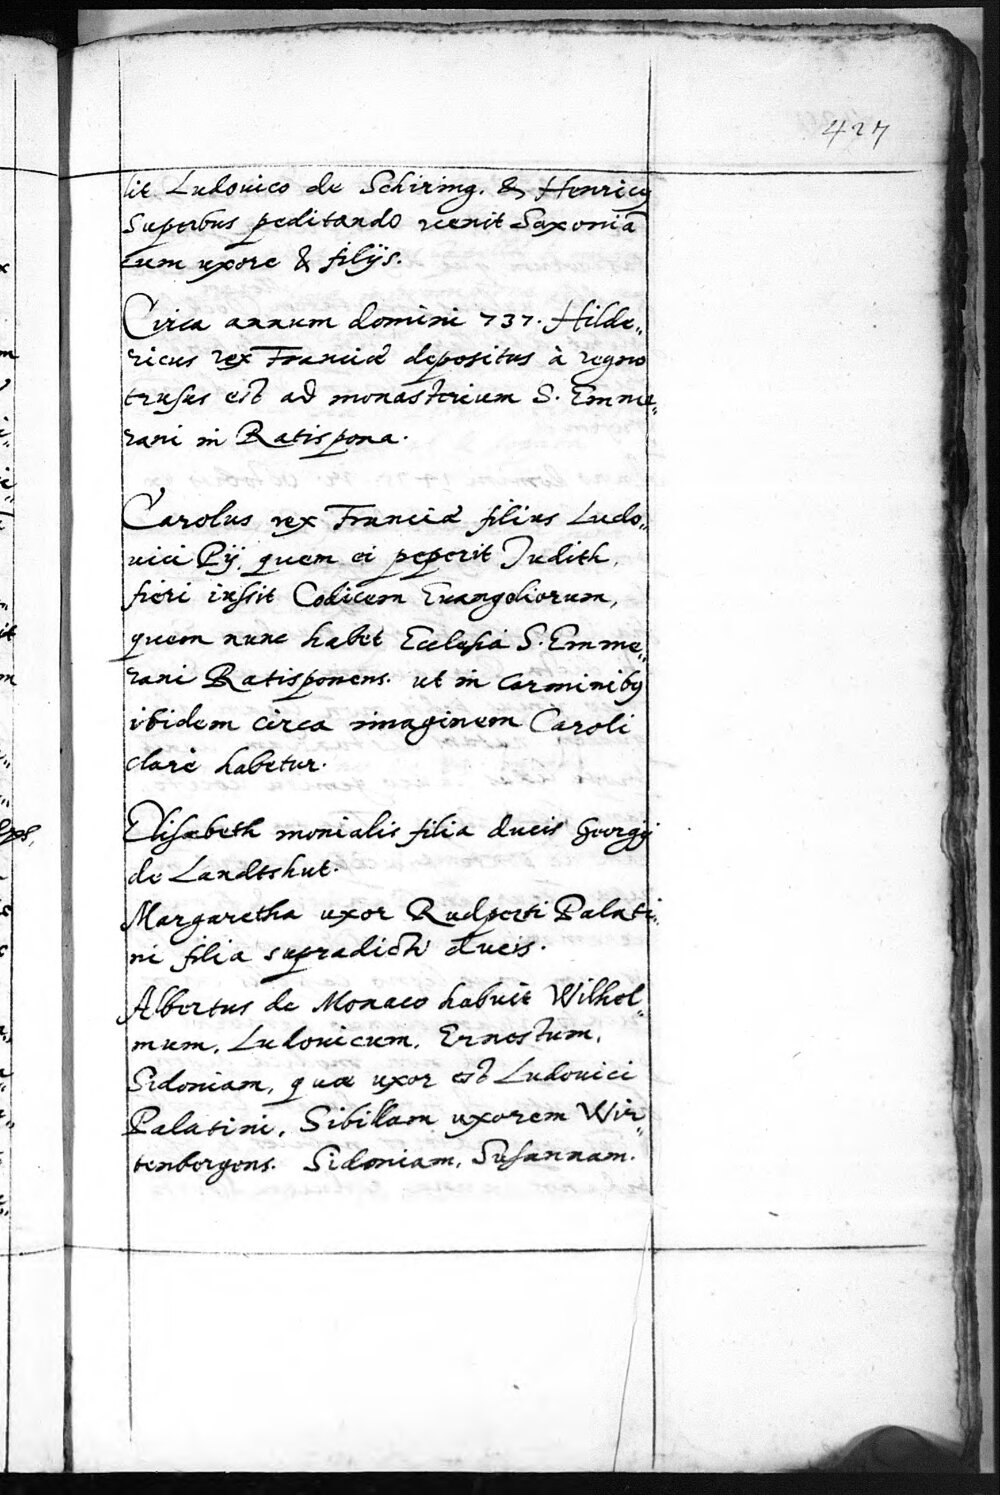 427
lit Ludouico de Schiring. & Henricꝰ
Superbus peditando uenit Saxoniā
cum uxore & filijs.
Circa annum domini 737. Hilde„
ricus rex Franciæ depositus à regno
trusus est ad monasterium S. Emme„
rani in Ratispona.
Carolus rex Franciæ filius Ludo„
uici Pij, quem ei peperit Judith,
fieri iussit Codicem Euangeliorum,
quem nunc habet Ecclesia S. Emme„
rani Ratisponens. ut in carminibꝰ
ibidem circa imaginem Caroli
clarè habetur.
Elisabeth monialis filia ducis Georgij
de Landtshut.
Margaretha uxor Rudperti Palati„
ni filia supradicti ducis.
Albertus de Monaco habuit Wilhel„
mum, Ludouicum, Ernestum,
Sidoniam, quæ uxor est Ludouici
Palatini, Sibillam uxorem Wir„
tenbergens. Sidoniam, Susannam.